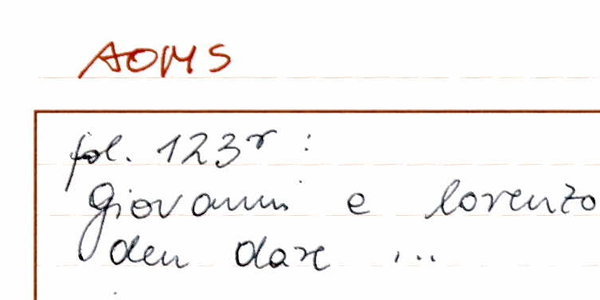 AOMS
fol. 123r :
Giovanni e lorenzo
den dare ...